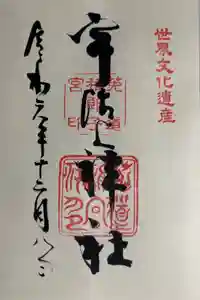 世界文化遺産
宇治上神社
令和元年十二月八日